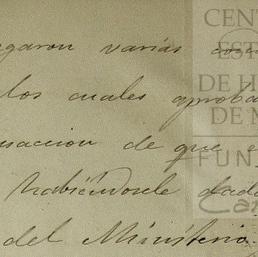 garon varias
los cuales aproba
de que e
habiéndosele dad
del Ministerio
CENT
EST
DE H
DE M
FUN